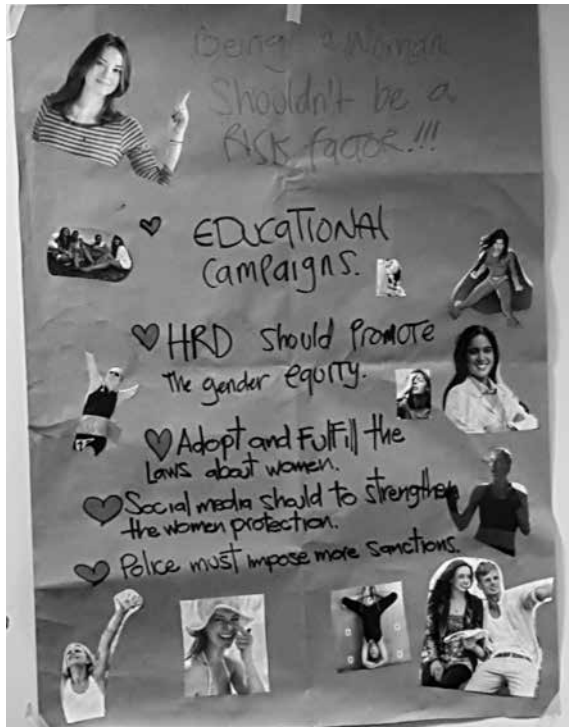 Being a Woman
Shouldn't be a
RISK factor!!!
EDUCATIONAL
Campaigns.
HRD should Promote
The gender equity.
Adopt and Fulfill the
Laws about women.
Social media should to strengthen
the women protection.
Police must impose more sanctions.